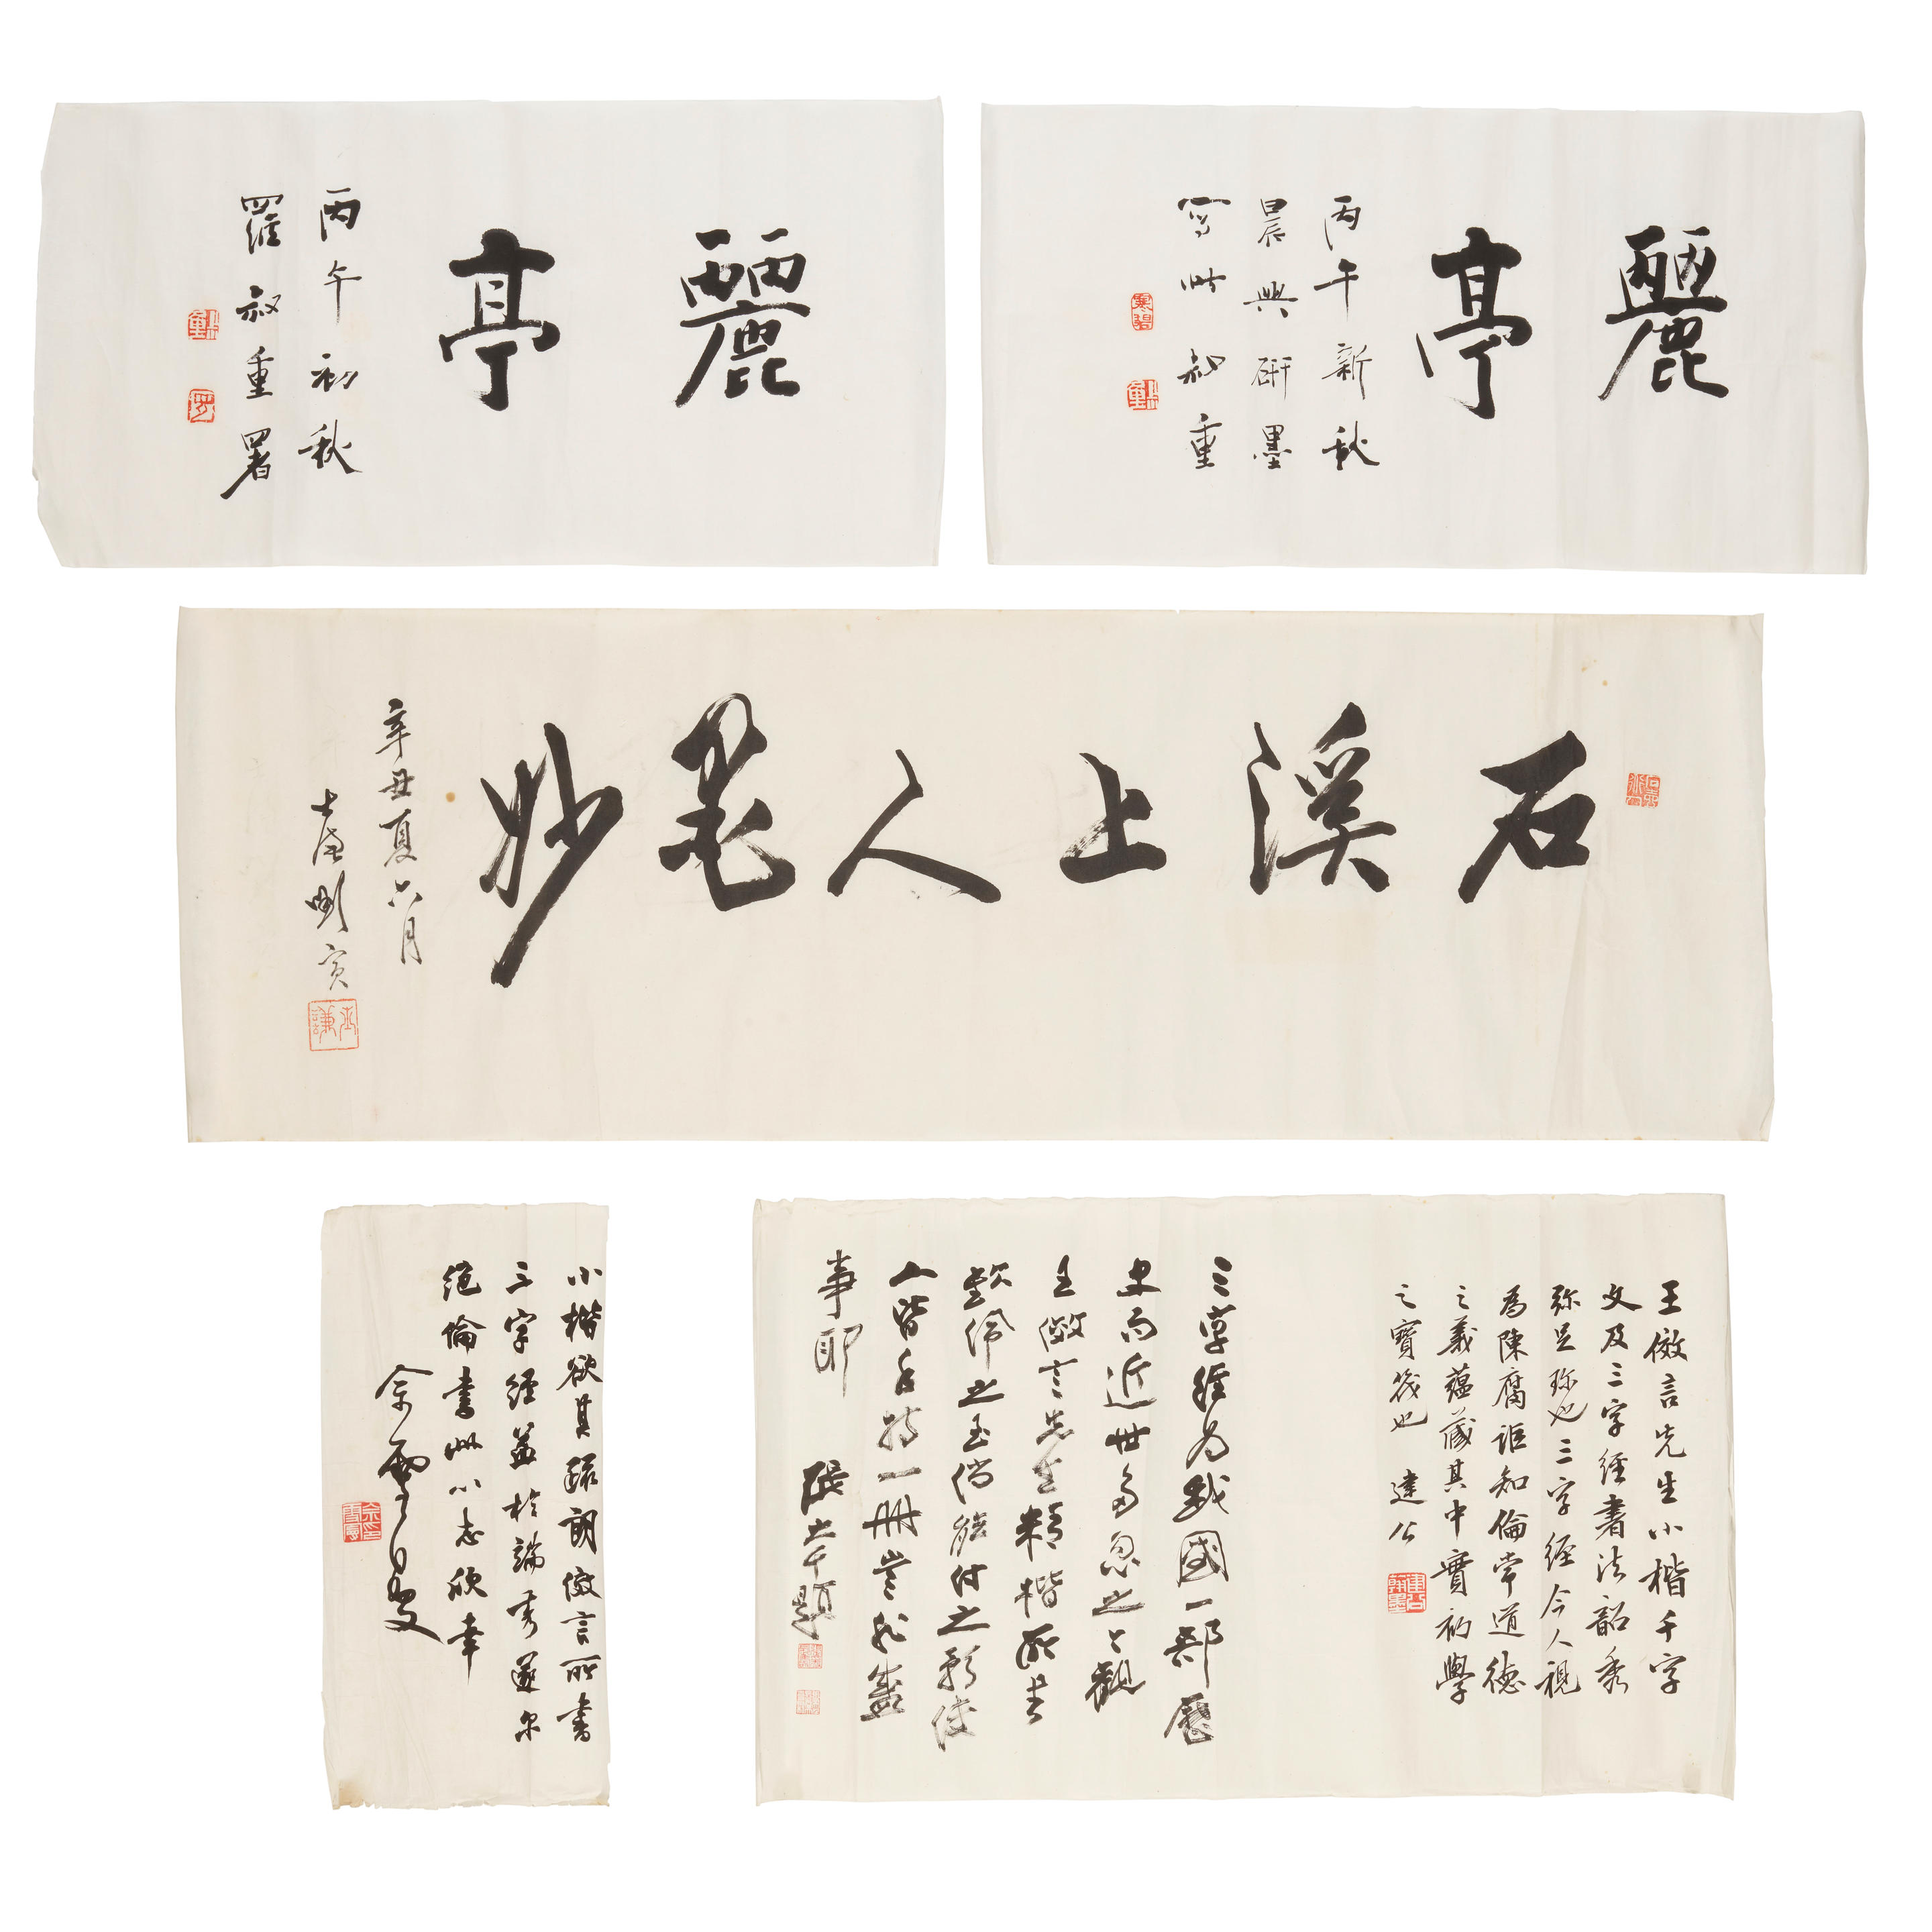 麗亭
丙午新秋
晨興研墨
寫此叔重
麗亭
丙午初秋
羅叔重署
石溪上人墨妙
辛丑夏六月
王儌言先生小楷千字
文及三字經書法韶秀
弥足珍也三字經今人視
為陳腐詎知倫常道德
之義蘊藏其中實初學
之寶筏也 達公
三字經为我國一部歷
史而近世多忽之々觀
王儌言先生精楷所書
歎佩之至倘能付之影使
人皆手持一冊豈非盛
事耶 張大千題
小楷欲其疏朗儌言所書
三字經蓋於端秀遂尔
絕倫書此以志欣幸
余雪曼